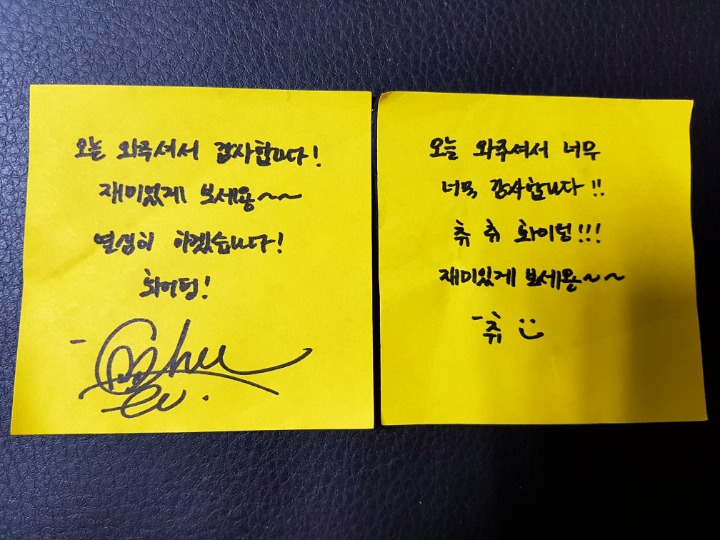 오늘 와주셔서 감사합니다!
재미있게 보세용~~
열심히 하겠습니다!
화이팅!
오늘 와주셔서 너무
너무 감사합니다!!
츄 츄 화이팅!!!
재미있게 보세용~~
-츄